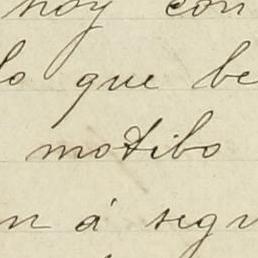 hoy con
lo que be
motibo
n á segu